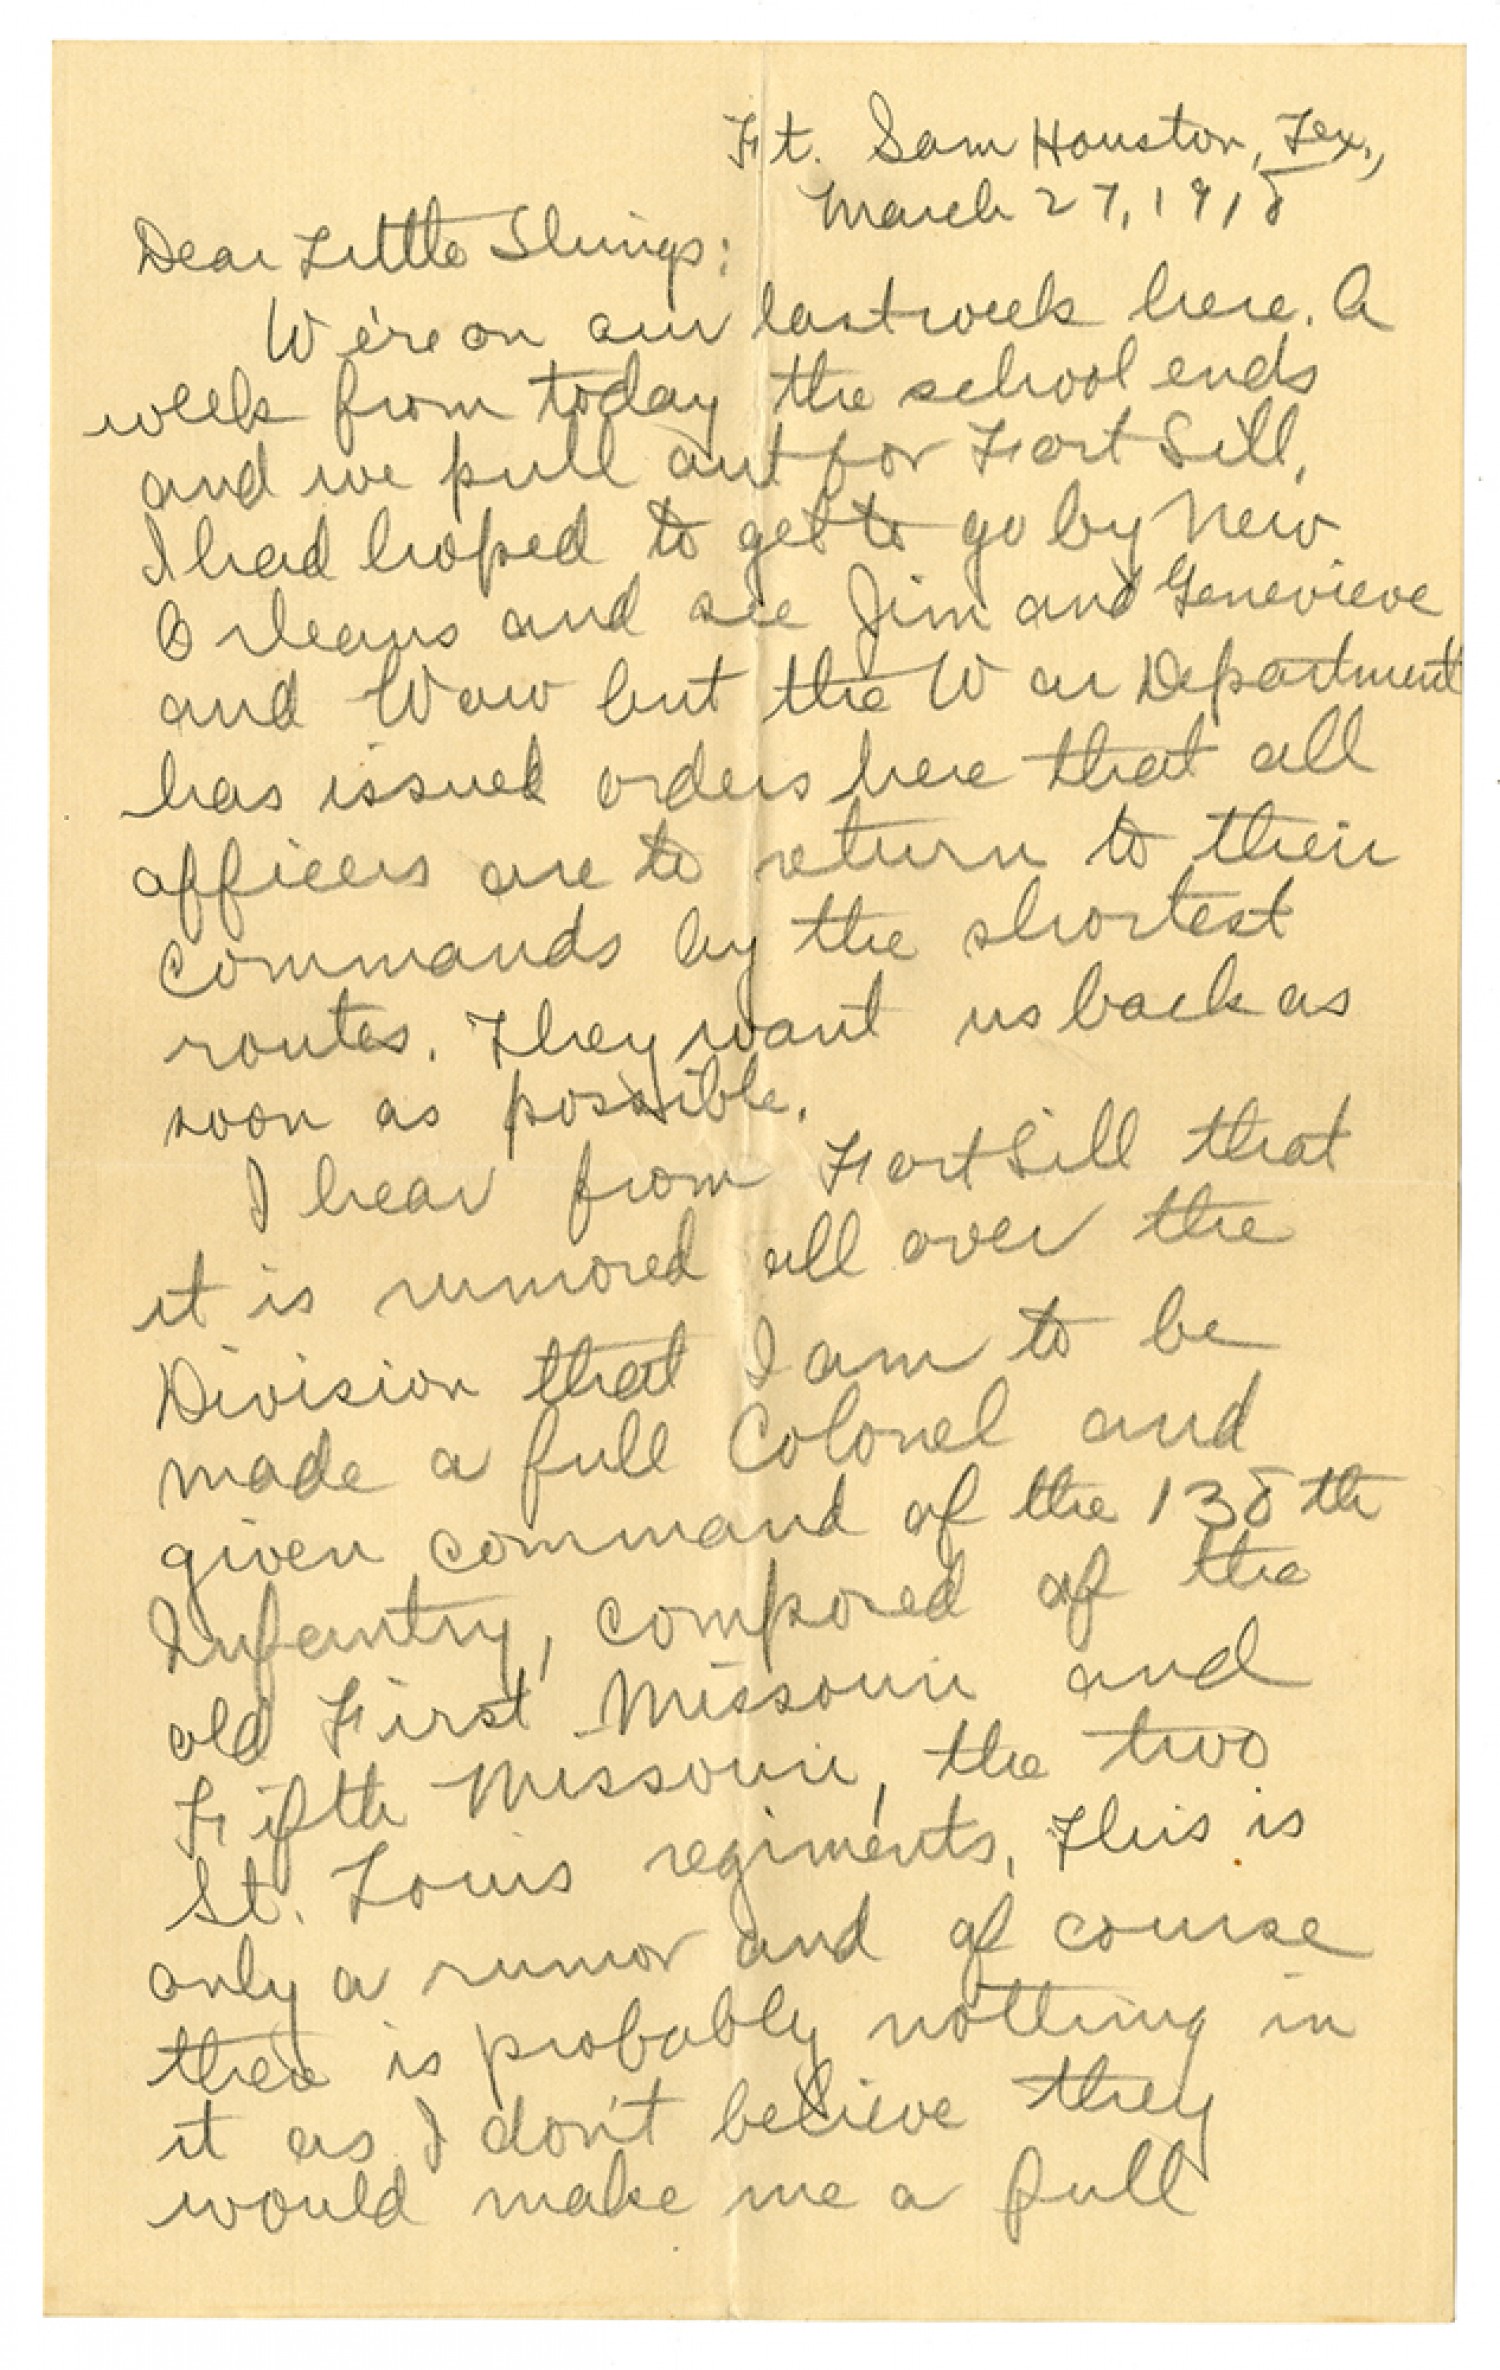 Ft. Sam Houston, Tex.,
March 27, 1918
Dear Little Slimps:
We're on our last week here. A
week from today the school ends
and we pull out for Fort Sill.
I had hoped to get to go by New
Orleans and see Jim and Genevieve
and Waw but the War Department
has issued orders here that all
officers are to return to their
commands by the shortest
routes. They want us back as
soon as possible.
I hear from Fort Sill that
it is rumored all over the
Division that I am to be
made a full Colonel and
given command of the 138th
Infantry, composed of the
old First Missouri and
Fifth Missouri, the two
St. Louis regiments. This is
only a rumor and of course
there is probably nothing in
it as I don't believe they
would make me a full